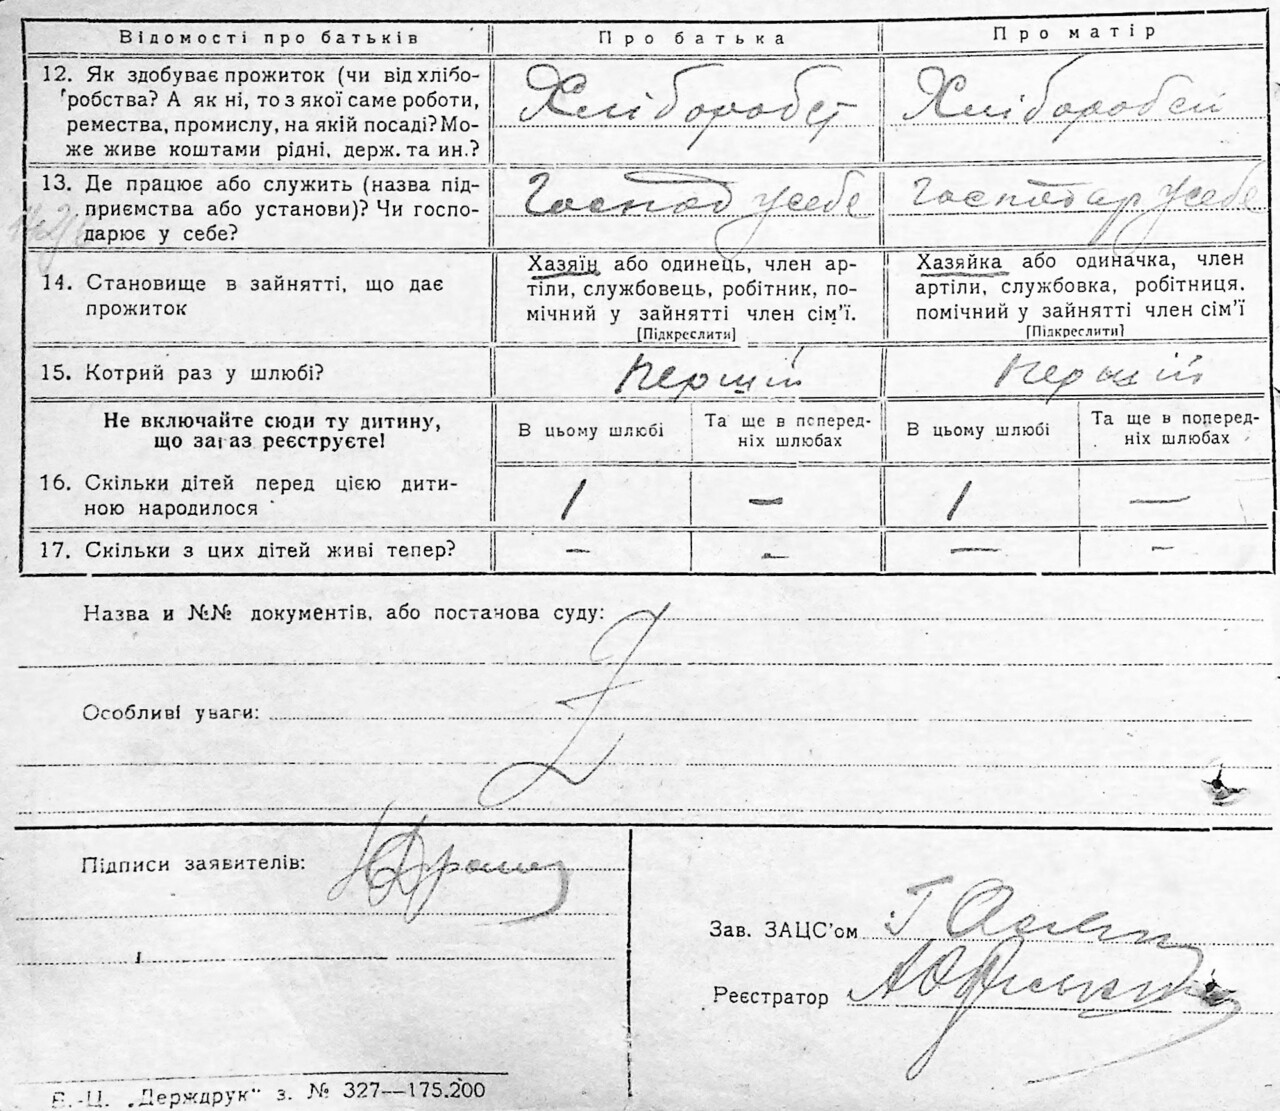 Відомості про батьків Про батька Про матір
12. Як здобуває прожиток (чи від хлібо-
робства? А як ні, то з якої саме роботи,
ремества, промислу, на якій посаді? Мо-
же живе коштами рідні, держ. та ин.?
Хлібороб Хлібороб
13. Де працює або служить (назва під-
приємства або установи)? Чи госпо-
дарює у себе?
Господ у себе Господар у себе
14. Становище в зайнятті, що дає
прожиток
Хазяїн або одинець, член ар-
тіли, службовець, робітник, по-
мічний у зайнятті член сім'ї.
[Підкреслити]
Хазяйка або одиначка, член
артіли, службовка, робітниця.
помічний у зайнятті член сім'ї
[Підкреслити]
15. Котрий раз у шлюбі? Перший Перший
Не включайте сюди ту дитину,
що зараз реєструєте!
В цьому шлюбі
Та ще в поперед-
ніх шлюбах
В цьому шлюбі
Та ще в поперед-
ніх шлюбах
16. Скільки дітей перед цією дити-
ною народилося
1 — 1 —
17. Скільки з цих дітей живі тепер? — — — —
Назва и №№ документів, або постанова суду:
Особливі уваги:
Підписи заявителів:
Зав. ЗАЦС'ом
Реєстратор
В.-Ц. „Держдрук" з. № 327—175.200